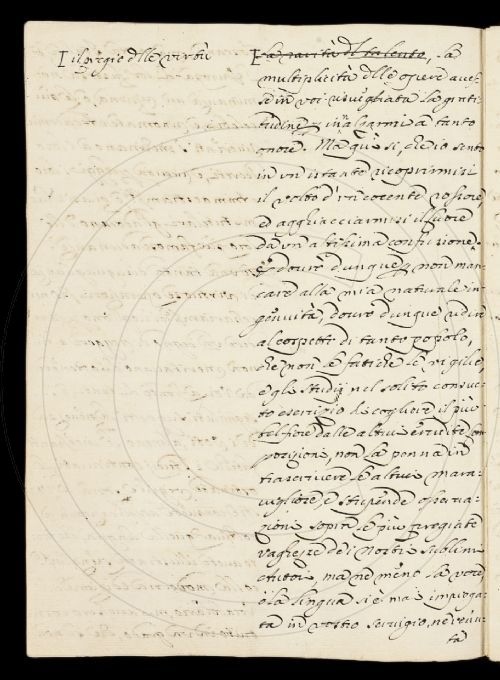 [ il pregio delle virtù
[ la rarità del talento, la
multiplicità delle opere aves-
se in voi risvegliata la grati-
tudine p inalzarmi a tanto
onore. Ma quì sì, che io sento
in un istante ricoprirmisi
il volto d'incocente rossore,
ed agghiacciarmisi il cuore
da un altissima confusione.
E dovrò dunque p non man-
care alla mia naturale in-
genuità, dovrò dunque ridire
al cospetto di tanto popolo,
che non le fatiche le vigilie,
e gli studij nel solito consue-
to esercizio di cogliere il più
bel fiore dalle altrui erudite com-
posizioni, non la penna in
trascrivere le altrui mara-
vigliose, e stupende osserva-
zioni sopra le più pregiate
vaghezze de i nostri sublimi
Autori, ma nè meno la voce,
o la lingua si è mai impiega-
ta in vostro servigio, ne
ta